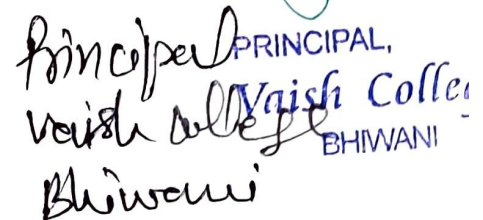 Principal
Vaish College
Bhiwani
PRINCIPAL,
Vaish Colle
BHIWANI